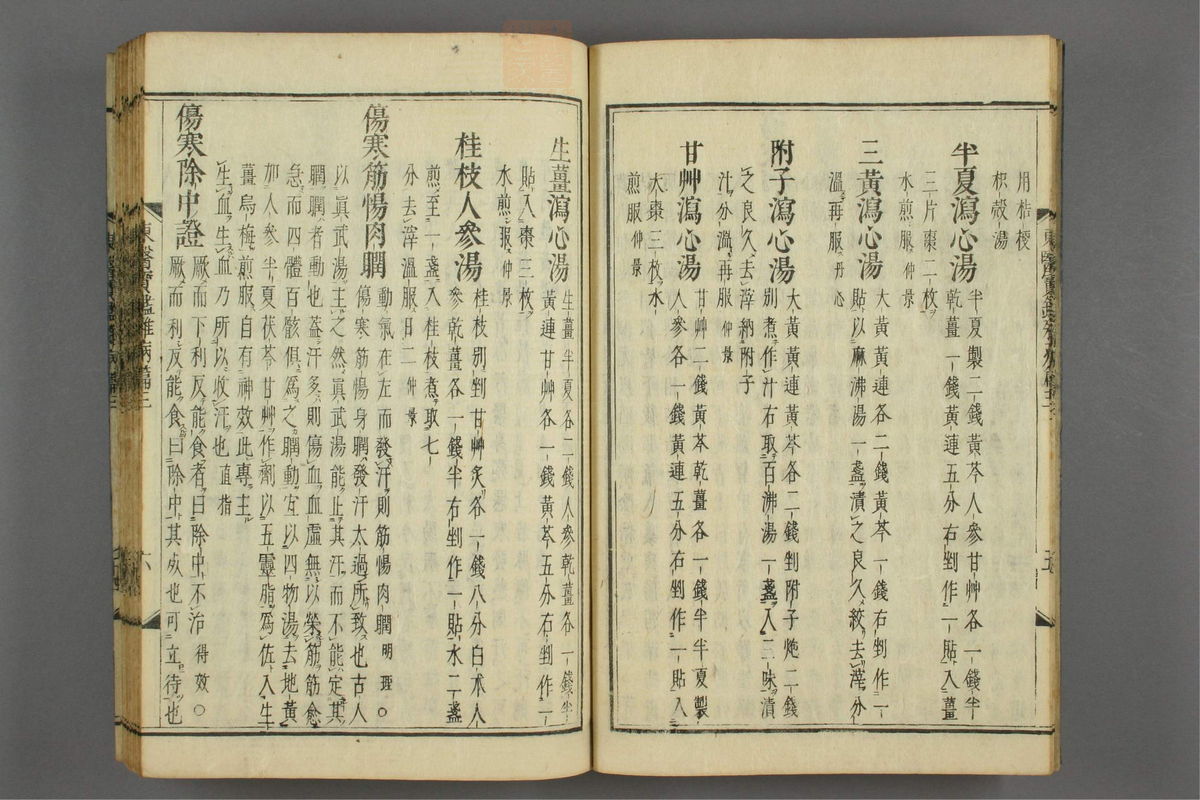 用桔梗
枳殼湯
半夏瀉心湯
半夏製二錢黃芩人參甘艸各一錢半
乾薑一錢黃連五分右剉作一貼入薑
三片棗二枚
水煎服仲景
三黃瀉心湯
大黃黃連各二錢黃芩一錢右剉作一
貼以麻沸湯一盞漬之良久絞去滓分
溫再服丹心
附子瀉心湯
大黃黃連黃芩各二錢剉附子炮二錢
別煮作汁右取百沸湯一盞入三味漬
之良久去滓納附子
汁分溫再服仲景
甘艸瀉心湯
甘艸二錢黃芩乾薑各一錢半半夏製
人參各一錢黃連五分右剉作一貼入
大棗三枚水
煎服仲景
五
生薑瀉心湯
生薑半夏各二錢人參乾薑各一錢半
黃連甘艸各一錢黃芩五分右剉作一
貼入棗三枚
水煎服仲景
桂枝人參湯
桂枝別剉甘艸炙各一錢八分白朮人
參乾薑各一錢半右剉作一貼水二盞
煎至一盞入桂枝煮取七
分去滓溫服日二仲景
傷寒筋惕肉瞤
動氣在左而發汗則筋惕肉瞤明理○
傷寒筋惕身瞤發汗太過所致也古人
以眞武湯主之然眞武湯能止其汗而不能定其
瞤瞤者動也蓋汗多則傷血血虛無以榮筋筋愈
急而四體百骸俱爲之瞤動宜以四物湯去地黃
加人參半夏茯苓甘艸作劑以五靈脂爲佐入生
薑烏梅煎服自有神效此專主
生血生血乃所以收汗也直指
傷寒除中證
厥而下利反能食者曰除中不治得效○
厥而利反能食曰除中其死也可立待也
東醫寶鑑雜病篇三
六